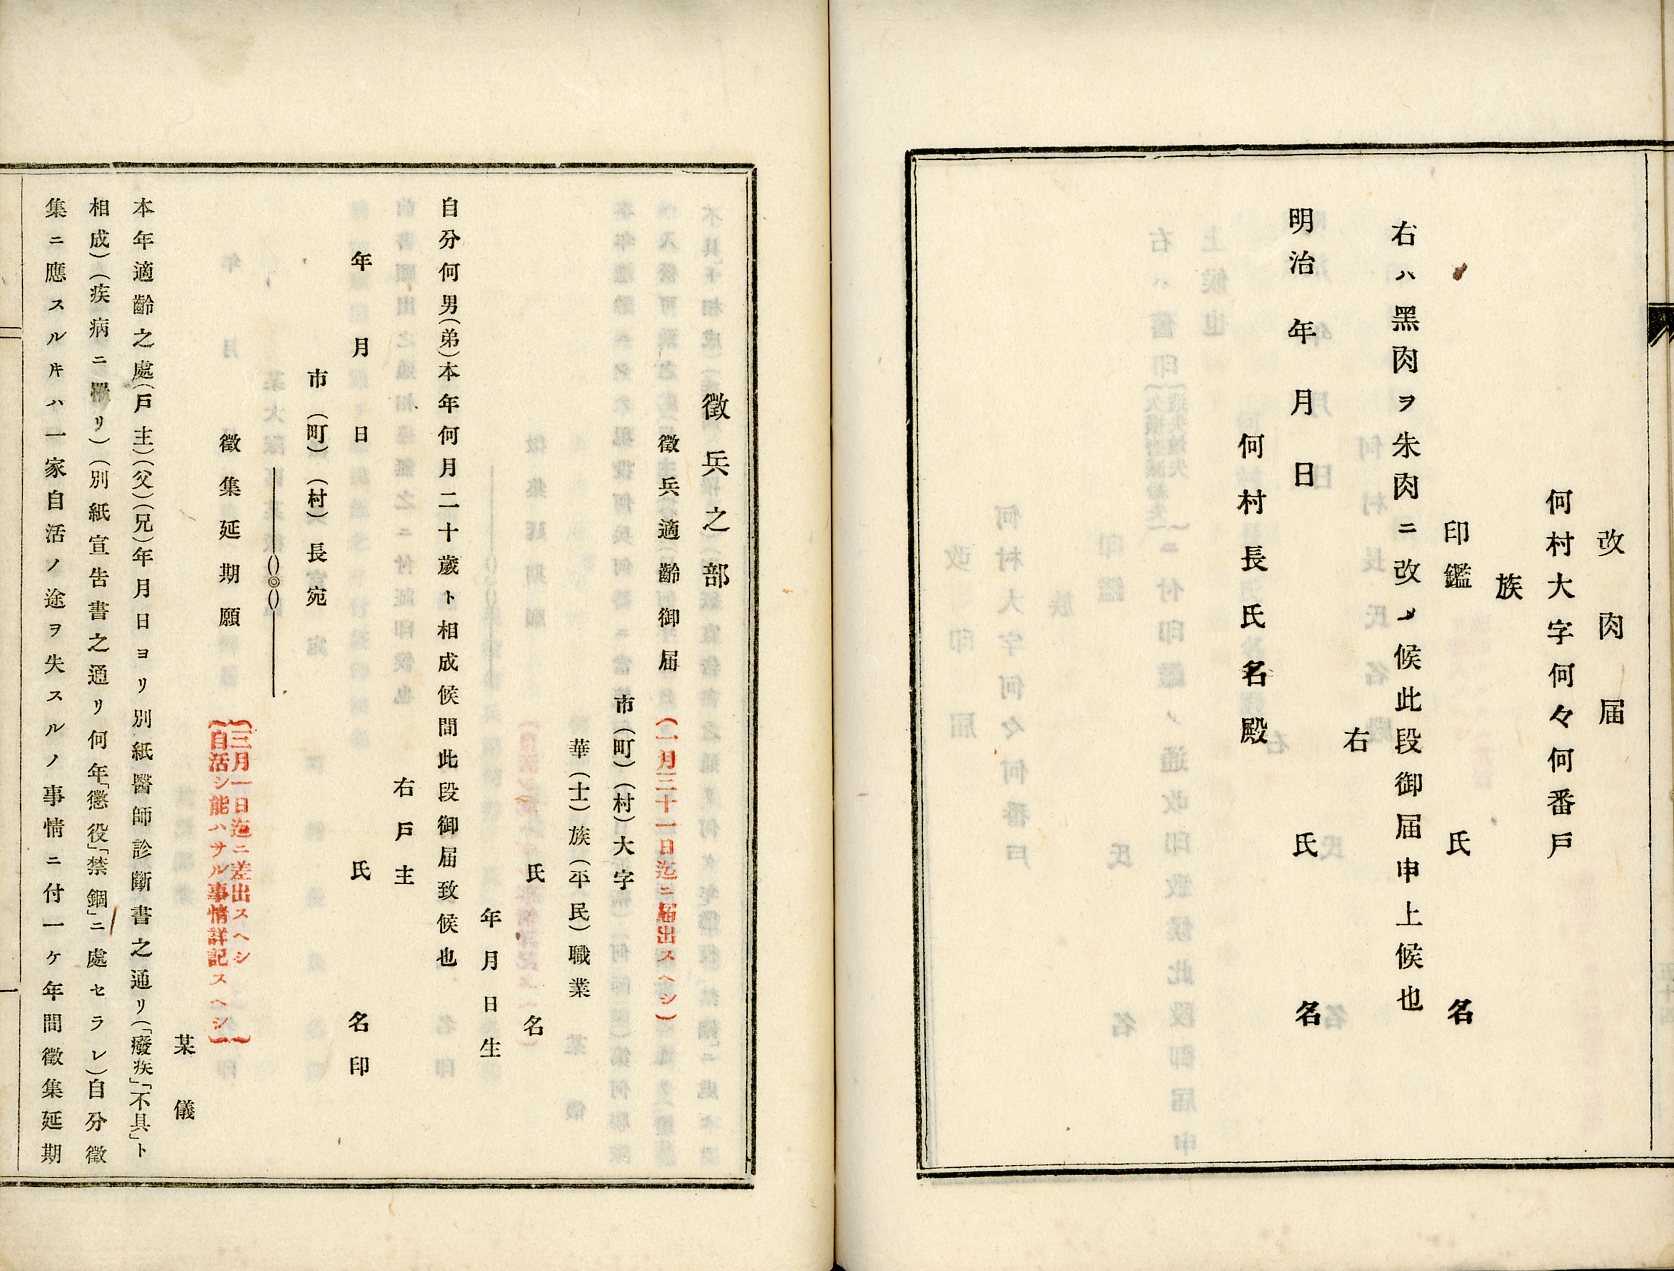 改肉届
何村大字何々何番戸
族
印鑑　氏　名
右ハ黑肉ヲ朱肉ニ改メ候此段御届申上候也
右
明治　年　月　日　氏　名
何村長氏名殿
徵兵之部
徵兵適齡御届（一月三十一日迄ニ届出スヘシ）
市（町）（村）大字
華（士）族（平民）職業
氏　名
年　月　日生
自分何男（弟）本年何月二十歲ト相成候間此段御届致候也
右戸主
年　月　日　氏　名印
市（町）（村）長宛
徵集延期願（三月一日迄ニ差出スヘシ）
（自活シ能ハサル事情詳記スヘシ）
某儀
本年適齡之處（戸主）（父）（兄）年月日ヨリ別紙醫師診斷書之通リ（「癈疾」「不具」ト
相成）（疾病ニ罹リ）（別紙宣告書之通リ何年「懲役」「禁錮」ニ處セラレ）自分徵
集ニ應スルキハ一家自活ノ途ヲ失スルノ事情ニ付一ヶ年間徵集延期